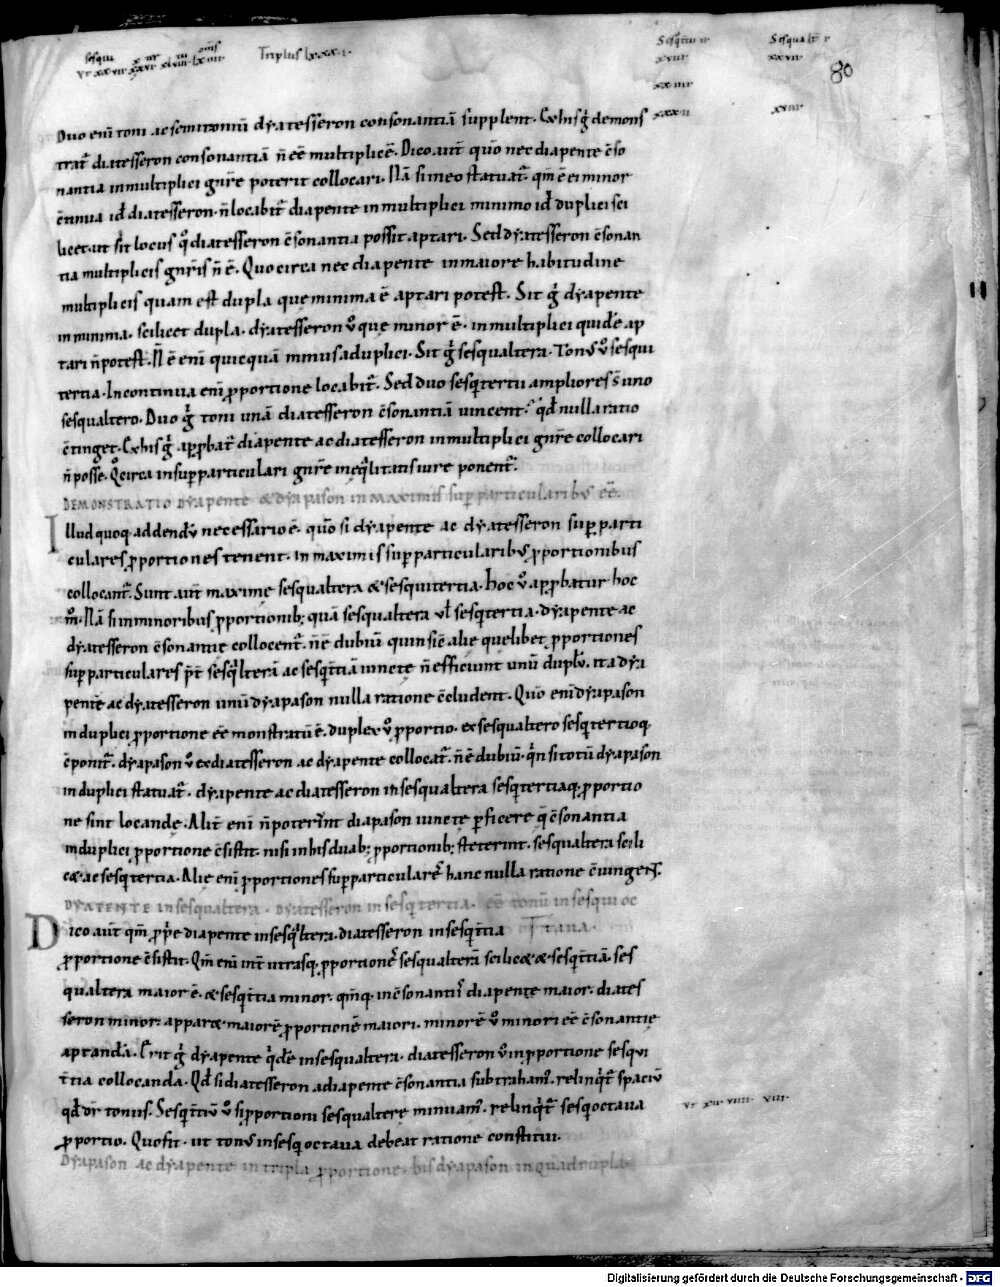 Triplus lxxxi·
80
Duo eni toni ac semitoniū dyatesseron consonantiā supplent. Exhis g̃ demons
trat̃ diatesseron consonantiā ñ eē multiplicē. Dico aut̃ quō nec diapente c̄so
nantia inmultiplici gn̄re poterit collocari. Nā si meo statuat̃. qm̄ ē ei minor
c̄tinua id̄ diatesseron. ñ locabit̃ diapente inmultiplici minimo id̄ duplici sci
licet. ut sit locus q̊ diatesseron c̄sonantia possit aptari. Sed dyatesseron c̄sonan
tia multiplicis gn̄ris ñ ē. Quocirca nec diapente inmaiore habitudine
multiplicis quam est dupla que minima ē aptari potest. Sit g̃ dyapente
in minima. scilicet dupla. dyatesseron v̊ que minor ē. in multiplici quidē ap
tari ñ potest. Ñ ē eni quicquā minus aduplici. Sit g̃ sesqualtera. Ton' v̊ sesqui
tertia. Incontinua eni p̱portione locabit̃. Sed duo sesq̇tertii ampliores s̄ uno
sesqualtero. Duo g̃ toni unā diatesseron c̄sonantiā vincent. qd̄ nulla ratio
c̄tinget. Exhis g̃ app̱bat̃ diapente ac diatesseron inmultiplici gn̄re collocari
ñ posse. Q̊circa insup̱particulari gn̄re ineq̄litatis iure ponent̃.
DEMONSTRATIO dyapente & dyapason in maximis sup̱particularib' eē.
Illud quoq; addendū necessario ē. quō si dyapente ac dyatesseron sup̱parti
culares p̱portiones tenent. in maximis sup̱particularib' p̱portionibus
collocant̃. Sunt aut̃ maxime sesqualtera & sesquitertia. hoc v̊ app̱batur hoc
m̊. Nā si inminoribus p̱portionib; quā sesqualtera ul̄ sesq̇tertia. dyapente ac
dyatesseron c̄sonantie collocent̃. ñ ē dubiū quin sic̄ alie quelibet p̱portiones
sup̱particulares p̄t sesq̄lterā ac sesq̇t̃iā iuncte ñ efficiunt unū duplū. ita dya
pente ac dyatesseron unū dyapason nulla ratione c̄cludent. Quō eni dyapason
in duplici p̱portione eē monstratū ē. duplex v̊ p̱portio. ex sesqualtero sesq̇tertioq;
c̄ponit̃. dyapason v̊ ex diatesseron ac dyapente collocat̃. ñ ē dubiū. q̇n si totū dyapason
in duplici statuat̃. dyapente ac diatesseron in sesqualtera sesq̇tertiaq; p̱portio
ne sint locande. Alit̃ eni ñ poterūt diapason iuncte p̱ficere q̄ c̄sonantia
induplici p̱portione c̄sistit. nisi in his duab; p̱portionib; steterint. sesqualtera scili
c& ac sesq̇tertia. Alie eni p̱portiones sup̱particulares hanc nulla ratione c̄iungent.
DYAPENTE in sesqualtera. dyatesseron in sesq̇tertia. eē tonū in sesqui oc
Dico aut̃ qm̄ p̱p̄e diapente insesq̄ltera. diatesseron insesq̇t̃ia tava.
p̱portione c̄sistit. Qm̄ eni int̃ utrasq; p̱portiones sesqualterā scilic& & sesq̇t̃iā. ses
qualtera maior ē. & sesq̇t̃ia minor. qm̄q; in c̄sonantiis diapente maior. diates
seron minor. appar& maiorē p̱portionē maiori. minorē v̊ minori eē c̄sonantie
aptandā. Erit g̃ dyapente q̇dē insesqualtera. diatesseron v̊ in p̱portione sesqui
t̃tia collocanda. Qd̄ si diatesseron adiapente c̄sonantia subtraham'. relinq̇t̃ spaciū
qd̄ dr̄ tonus. Sesq̇t̃iū v̊ si p̱portioni sesqualtere minuam'. relinq̇t̃ sesq̇octaua
p̱portio. Quo fit. ut ton' insesq; octaua debeat ratione constitui.
Dyapason ac dyapente in tripla p̱portione. bis dyapason in quadrupla.
Digitalisierung gefördert durch die Deutsche Forschungsgemeinschaft - DFG